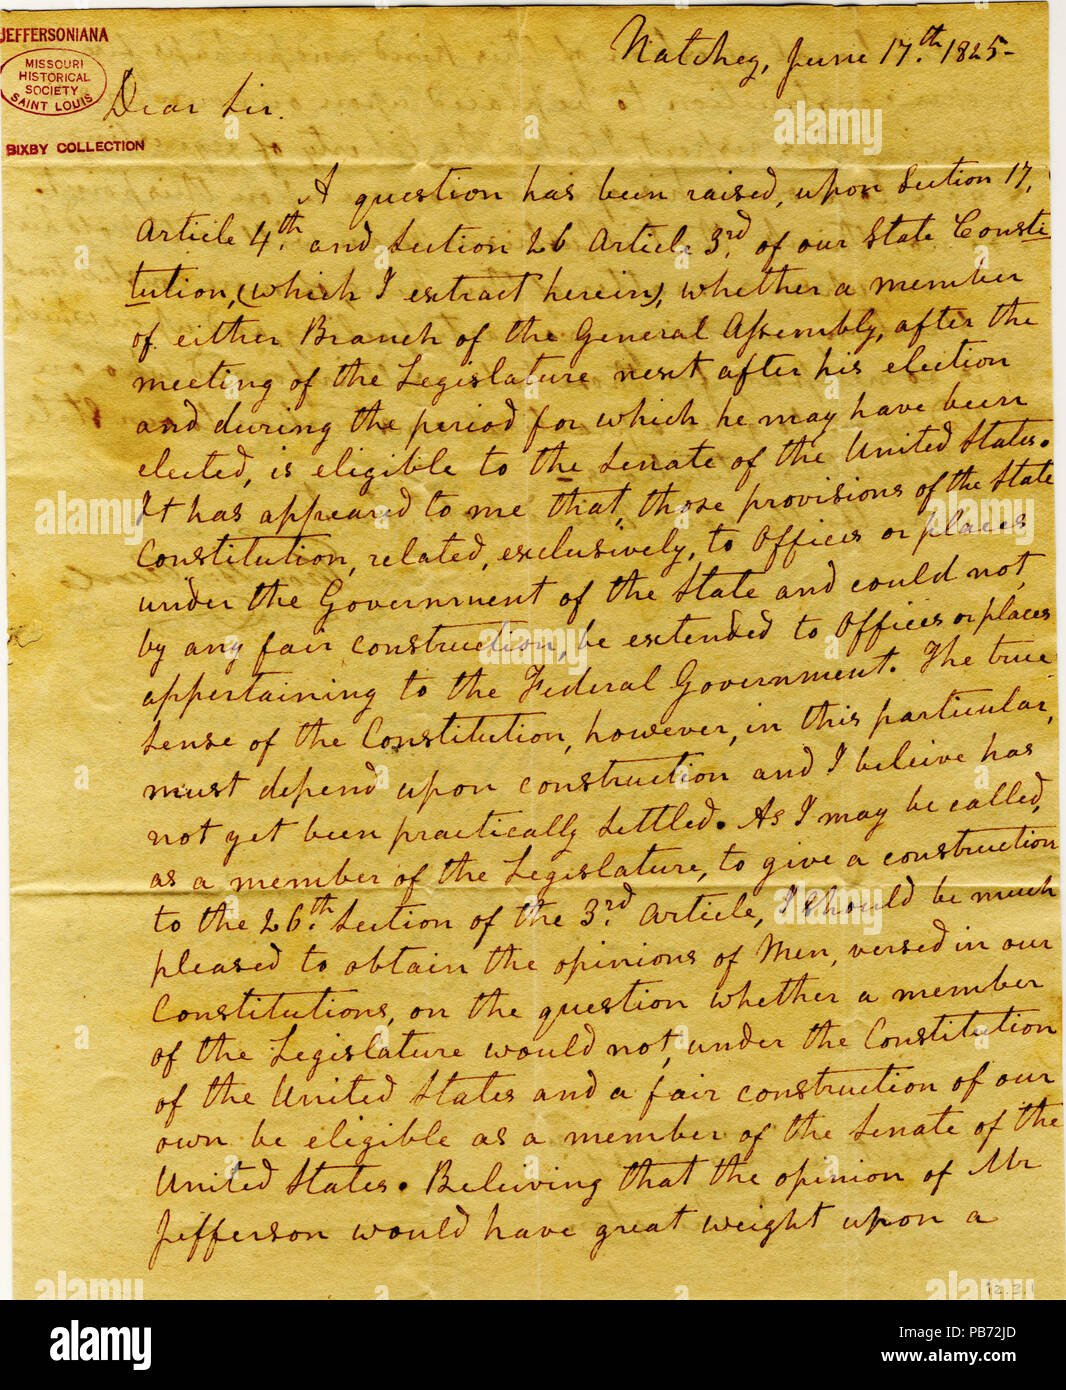 JEFFERSONIANA
MISSOURI
HISTORICAL
SOCIETY
SAINT LOUIS
BIXBY COLLECTION
Natchez, June 17.th 1825-
Dear Sir.
A question has been raised, upon Section 17,
Article 4.th and Section 26 Article 3.rd of our State Consti
tution, (which I extract herein), whether a member
of either Branch of the General Assembly, after the
meeting of the Legislature next after his election
and during the period for which he may have been
elected, is eligible to the Senate of the United States.
It has appeared to me that, those provisions of the State
Constitution, related, exclusively, to Offices or places
under the Government of the State and could not,
by any fair construction, be extended to Offices or places
appertaining to the Federal Government. The true
sense of the Constitution, however, in this particular,
must depend upon construction and I beleive has
not yet been practically settled. As I may be called,
as a member of the Legislature, to give a construction
to the 26.th Section of the 3.rd Article, I should be much
pleased to obtain the opinions of Men, versed in our
Constitutions, on the question whether a member
of the Legislature would not, under the Constitution
of the United States and a fair construction of our
own be eligible as a member of the Senate of the
United States. Beleiving that the opinion of Mr
Jefferson would have great weight upon a
12.2.1
alamy
Image ID: PB72JD
www.alamy.com